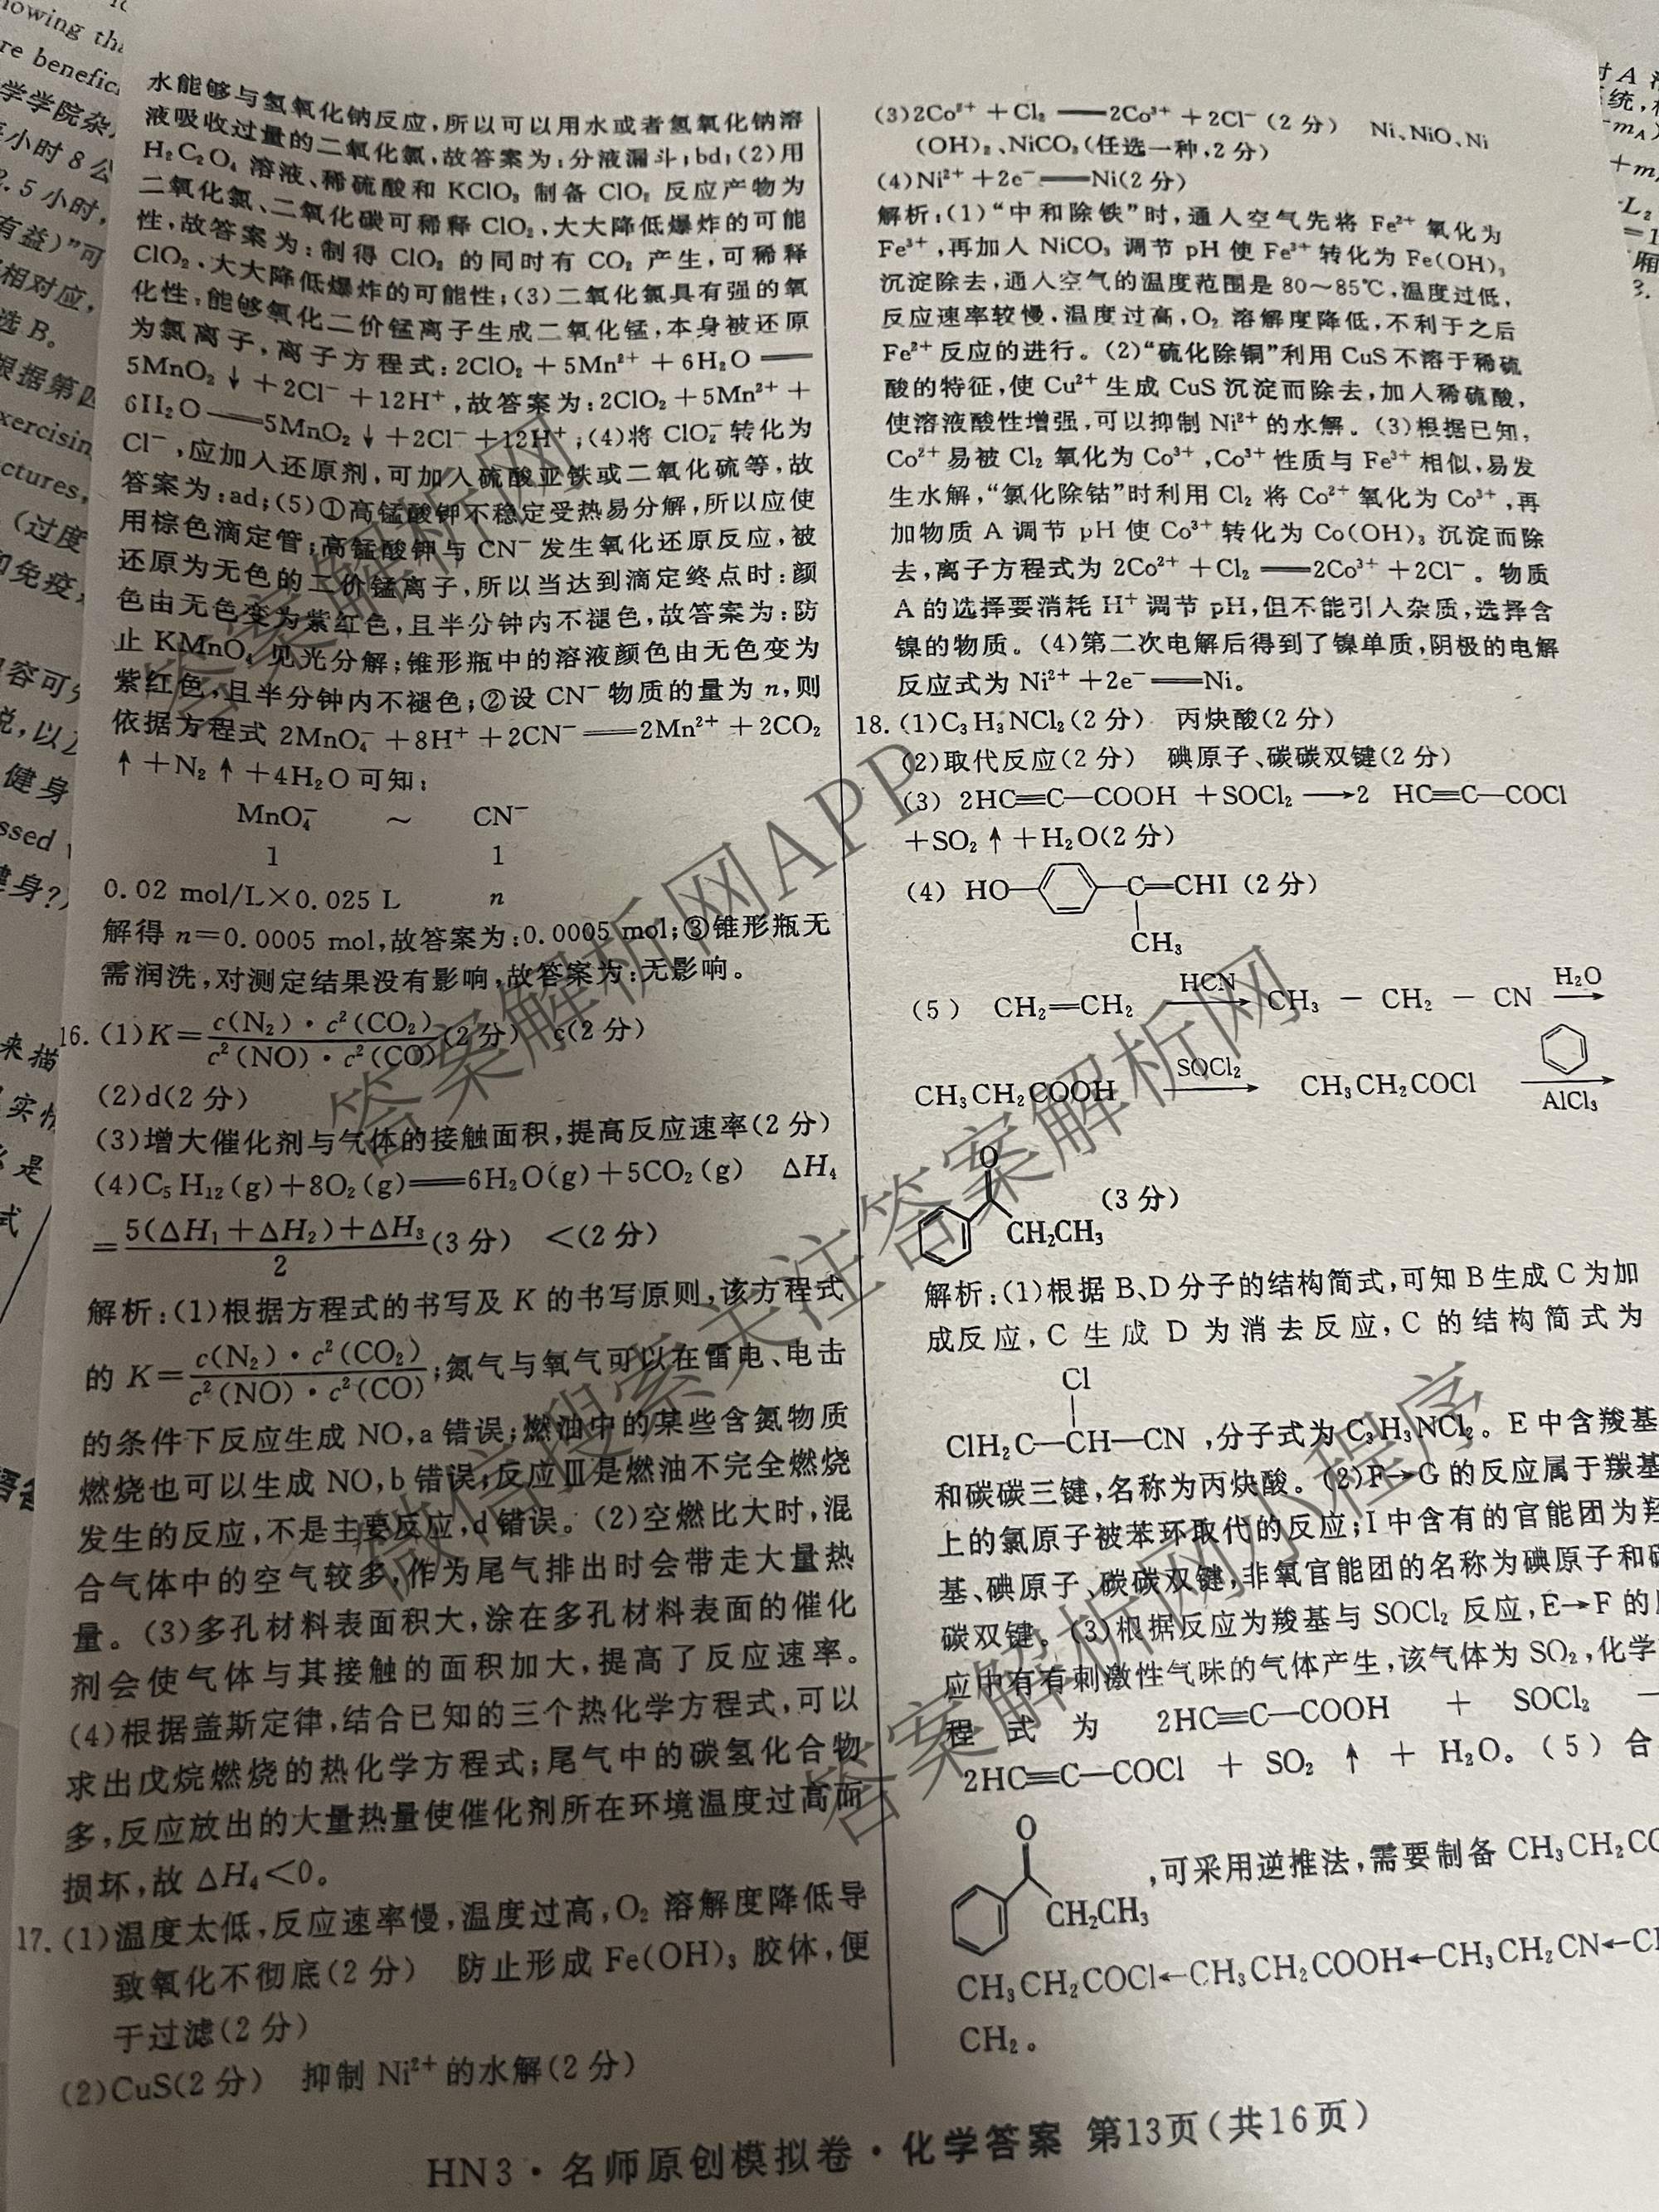 水能够与氢氧化钠反应,所以可以用水或者氢氧化钠溶
液吸收过量的二氧化氯,故答案为:分液漏斗;bd;(2)用
H₂C₂O₄ 溶液、稀硫酸和 KClO₃ 制备 ClO₂ 反应产物为
二氧化氯、二氧化碳可稀释 ClO₂,大大降低爆炸的可能
性,故答案为:制得 ClO₂ 的同时有 CO₂ 产生,可稀释
ClO₂,大大降低爆炸的可能性;(3)二氧化氯具有强的氧
化性,能够氧化二价锰离子生成二氧化锰,本身被还原
为氯离子,离子方程式:2ClO₂+5Mn²⁺+6H₂O══
5MnO₂↓+2Cl⁻+12H⁺,故答案为:2ClO₂+5Mn²⁺+
6H₂O══5MnO₂↓+2Cl⁻+12H⁺;(4)将 ClO₂⁻ 转化为
Cl⁻,应加入还原剂,可加入硫酸亚铁或二氧化硫等,故
答案为:ad;(5)①高锰酸钾不稳定受热易分解,所以应使
用棕色滴定管;高锰酸钾与 CN⁻ 发生氧化还原反应,被
还原为无色的二价锰离子,所以当达到滴定终点时:颜
色由无色变为紫红色,且半分钟内不褪色,故答案为:防
止 KMnO₄ 见光分解;锥形瓶中的溶液颜色由无色变为
紫红色,且半分钟内不褪色;②设 CN⁻ 物质的量为 n,则
依据方程式 2MnO₄⁻+8H⁺+2CN⁻══2Mn²⁺+2CO₂
↑+N₂↑+4H₂O 可知:
MnO₄⁻ ~ CN⁻
1 1
0.02 mol/L×0.025 L n
解得 n=0.0005 mol,故答案为:0.0005 mol;③锥形瓶无
需润洗,对测定结果没有影响,故答案为:无影响。
16.(1)K=c(N₂)·c²(CO₂)/c²(NO)·c²(CO)(2分) c(2分)
(2)d(2分)
(3)增大催化剂与气体的接触面积,提高反应速率(2分)
(4)C₅H₁₂(g)+8O₂(g)══6H₂O(g)+5CO₂(g) ΔH₄
=5(ΔH₁+ΔH₂)+ΔH₃/2(3分) <(2分)
解析:(1)根据方程式的书写及 K 的书写原则,该方程式
的 K=c(N₂)·c²(CO₂)/c²(NO)·c²(CO);氮气与氧气可以在雷电、电击
的条件下反应生成 NO,a 错误;燃油中的某些含氮物质
燃烧也可以生成 NO,b 错误;反应Ⅲ是燃油不完全燃烧
发生的反应,不是主要反应,d 错误。(2)空燃比大时,混
合气体中的空气较多,作为尾气排出时会带走大量热
量。(3)多孔材料表面积大,涂在多孔材料表面的催化
剂会使气体与其接触的面积加大,提高了反应速率。
(4)根据盖斯定律,结合已知的三个热化学方程式,可以
求出戊烷燃烧的热化学方程式;尾气中的碳氢化合物
多,反应放出的大量热量使催化剂所在环境温度过高而
损坏,故 ΔH₄<0。
17.(1)温度太低,反应速率慢,温度过高,O₂ 溶解度降低导
致氧化不彻底(2分) 防止形成 Fe(OH)₃ 胶体,便
于过滤(2分)
(2)CuS(2分) 抑制 Ni²⁺ 的水解(2分)
(3)2Co²⁺+Cl₂══2Co³⁺+2Cl⁻(2分) Ni、NiO、Ni
(OH)₂、NiCO₃(任选一种,2分)
(4)Ni²⁺+2e⁻══Ni(2分)
解析:(1)“中和除铁”时,通入空气先将 Fe²⁺ 氧化为
Fe³⁺,再加入 NiCO₃ 调节 pH 使 Fe³⁺ 转化为 Fe(OH)₃
沉淀除去,通入空气的温度范围是 80～85℃,温度过低,
反应速率较慢,温度过高,O₂ 溶解度降低,不利于之后
Fe²⁺ 反应的进行。(2)“硫化除铜”利用 CuS 不溶于稀硫
酸的特征,使 Cu²⁺ 生成 CuS 沉淀而除去,加入稀硫酸,
使溶液酸性增强,可以抑制 Ni²⁺ 的水解。(3)根据已知,
Co²⁺ 易被 Cl₂ 氧化为 Co³⁺,Co³⁺ 性质与 Fe³⁺ 相似,易发
生水解,“氯化除钴”时利用 Cl₂ 将 Co²⁺ 氧化为 Co³⁺,再
加物质 A 调节 pH 使 Co³⁺ 转化为 Co(OH)₃ 沉淀而除
去,离子方程式为 2Co²⁺+Cl₂══2Co³⁺+2Cl⁻。物质
A 的选择要消耗 H⁺ 调节 pH,但不能引入杂质,选择含
镍的物质。(4)第二次电解后得到了镍单质,阴极的电解
反应式为 Ni²⁺+2e⁻══Ni。
18.(1)C₃H₃NCl₂(2分) 丙炔酸(2分)
(2)取代反应(2分) 碘原子、碳碳双键(2分)
(3) 2HC≡C—COOH +SOCl₂ ⟶2 HC≡C—COCl
+SO₂↑+H₂O(2分)
(4) HO— —C=CHI (2分)
CH₃
(5) CH₂=CH₂ HCN→ CH₃ － CH₂ － CN H₂O→
CH₃CH₂COOH SOCl₂→ CH₃CH₂COCl AlCl₃→
O
CH₂CH₃ (3分)
解析:(1)根据 B、D 分子的结构简式,可知 B 生成 C 为加
成反应,C 生成 D 为消去反应,C 的结构简式为
Cl
ClH₂C—CH—CN ,分子式为 C₃H₃NCl₂。E 中含羧基
和碳碳三键,名称为丙炔酸。(2)F→G 的反应属于羰基
上的氯原子被苯环取代的反应;I 中含有的官能团为羟
基、碘原子、碳碳双键,非氧官能团的名称为碘原子和碳
碳双键。(3)根据反应为羧基与 SOCl₂ 反应,E→F 的
应中有有刺激性气味的气体产生,该气体为 SO₂,化学
程式为 2HC≡C—COOH + SOCl₂
2HC≡C—COCl + SO₂ ↑ + H₂O。(5)合
O
CH₂CH₃ ,可采用逆推法,需要制备 CH₃CH₂CO
CH₃CH₂COCl←CH₃CH₂COOH←CH₃CH₂CN←
CH₂。
HN3·名师原创模拟卷·化学答案 第13页(共16页)
答案解析网
答案解析网APP
微信搜索关注答案解析网
答案解析网小程序